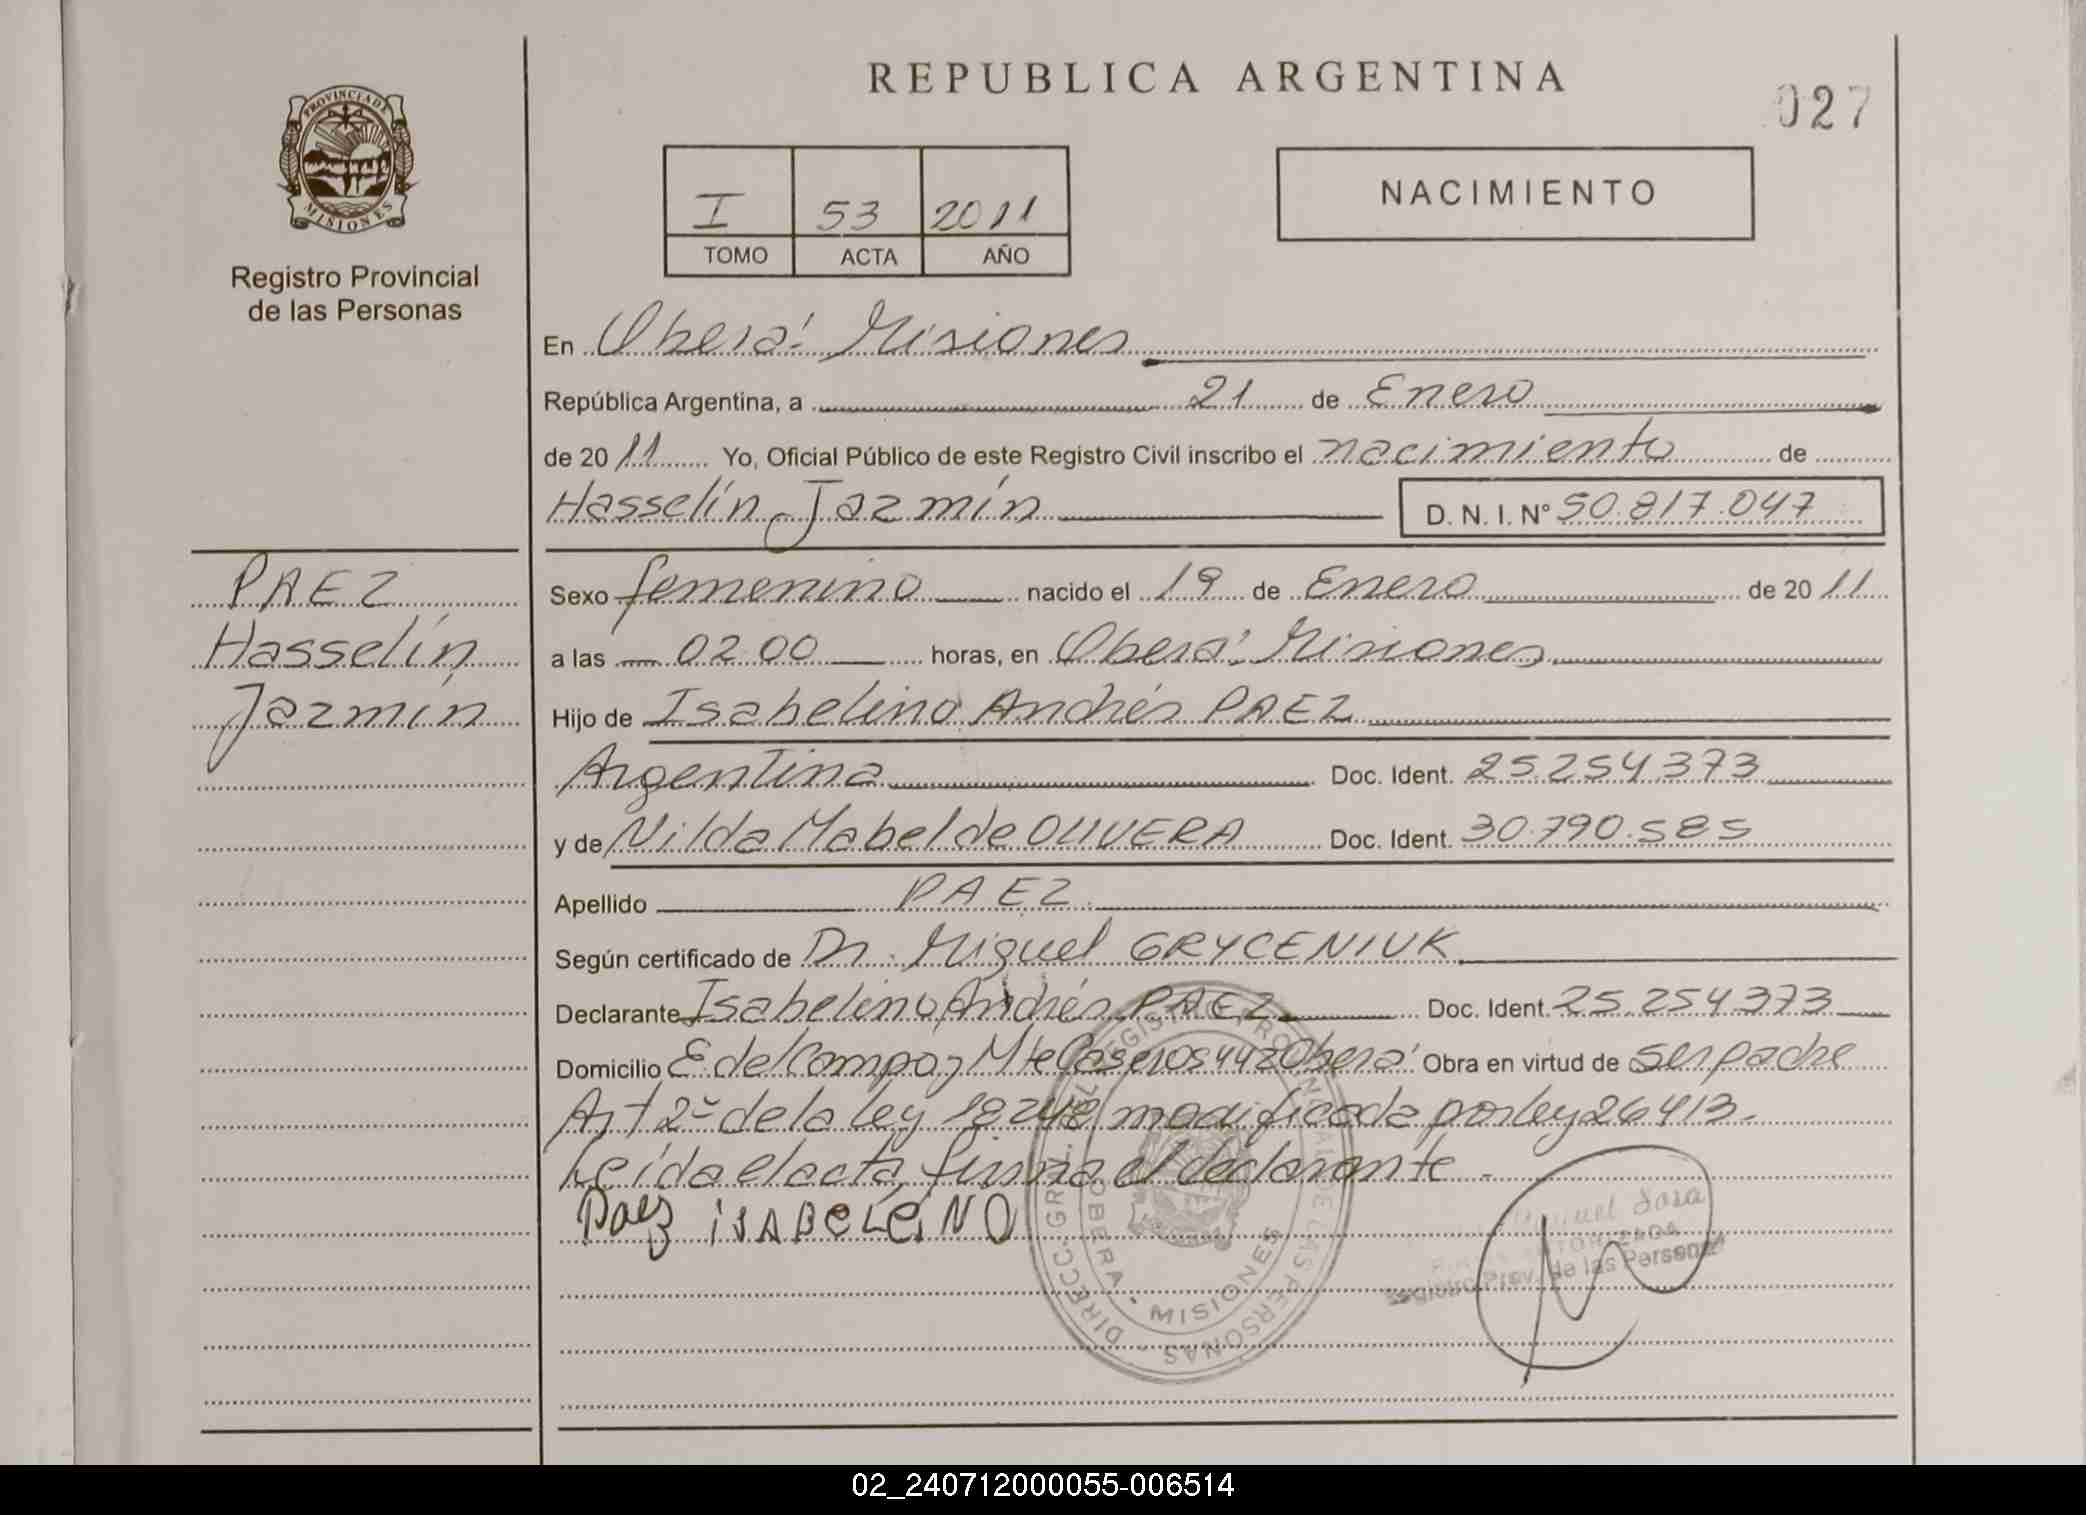 REPUBLICA ARGENTINA
027
PROVINCIA DE
MISIONES
Registro Provincial
de las Personas
I 53 2011
TOMO ACTA AÑO
NACIMIENTO
En Oberá: Misiones
República Argentina, a 21 de Enero
de 2011 Yo, Oficial Público de este Registro Civil inscribo el nacimiento de
Hasselín Jazmín D. N. I. N° 50.817.047
PAEZ
Hasselín
Jazmín
Sexo femenino nacido el 19 de Enero de 2011
a las 02:00 horas, en Oberá: Misiones
Hijo de Isabelino Andrés PAEZ
Argentina Doc. Ident. 25.254.373
y de Nilda Mabel de OLIVERA Doc. Ident. 30.790.585
Apellido PAEZ
Según certificado de Dr. Miguel GRYCENIUK
Declarante Isabelino Andrés PAEZ Doc. Ident. 25.254.373
Domicilio E del Campo y Mte Caseros 442 Oberá Obra en virtud de ser padre
Art 2º de la ley 18248 modificada por ley 26413.
Leída el acta, firma el declarante.
Paez ISABELINO
DIRECC. GRAL. DEL REGISTRO PROVINCIAL DE LAS PERSONAS
OBERA - MISIONES
Miguel Sosa
AUTORIZADA
Registro Prov. de las Personas
02_240712000055-006514